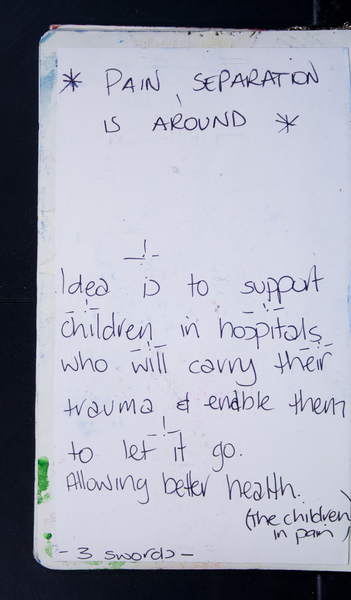 * PAIN, SEPARATION
IS AROUND *
Idea is to support
children in hospitals
who will carry their
trauma & enable them
to let it go.
Allowing better health.
(the children
in pain)
- 3 swords -